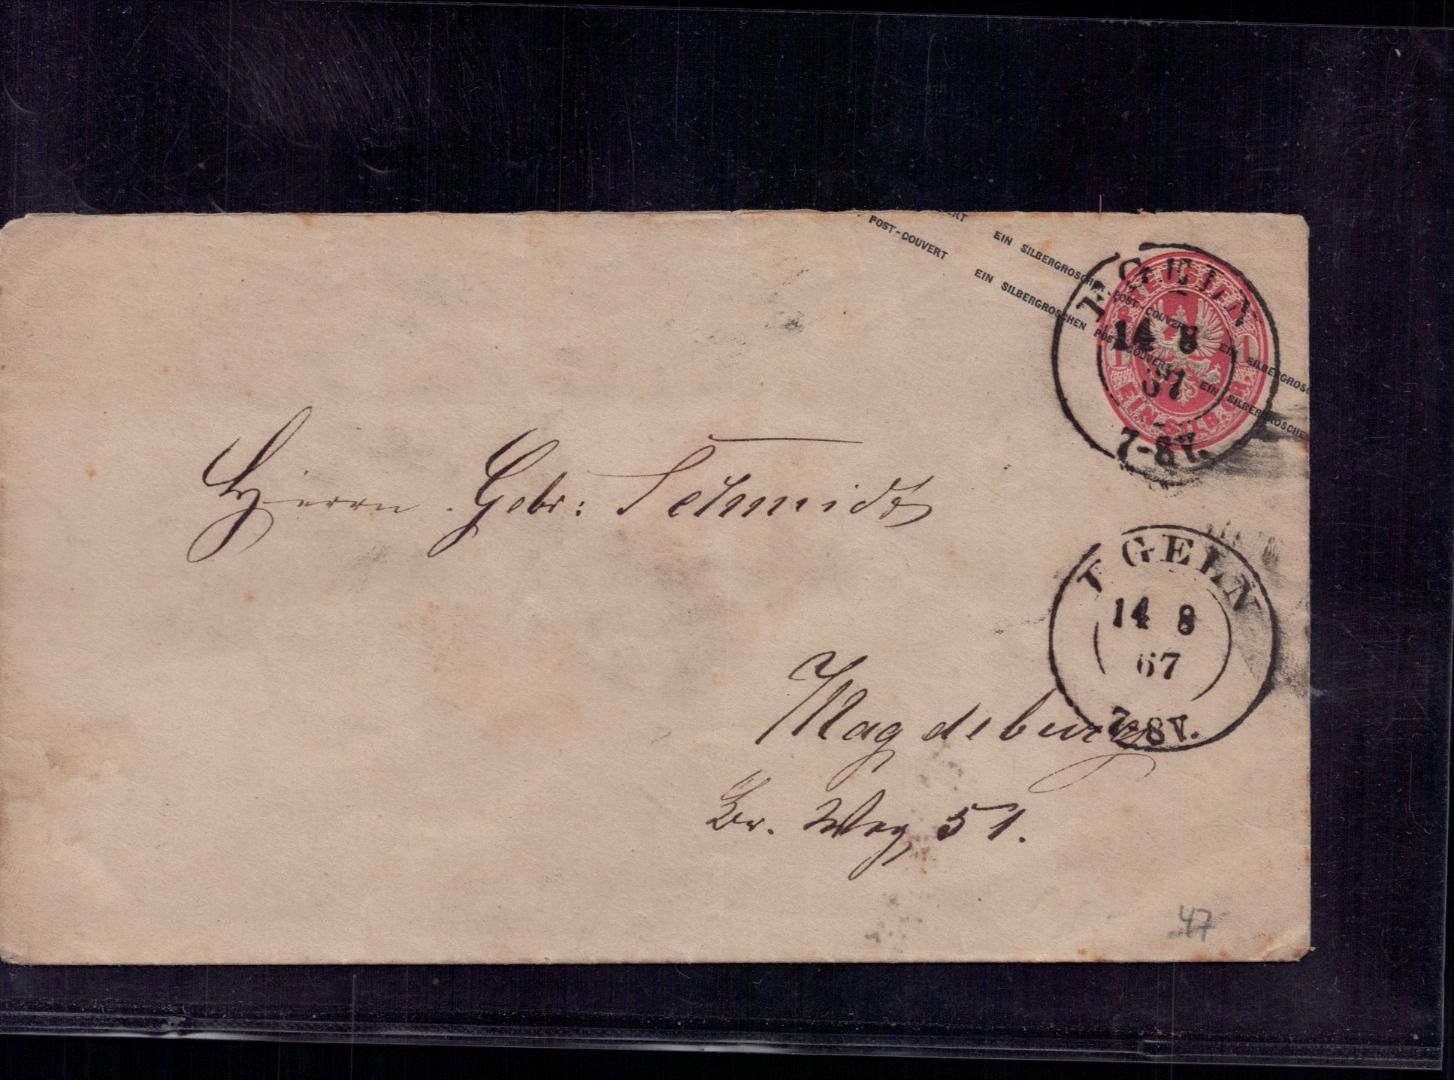 POST-COUVERT EIN SILBERGROSCHEN POST-COUVERT EIN SILBERGROSCHE
EIN SILBERGROSCHEN POST-COUVERT EIN SILBERGROS
EGELN
14 8
67
7-8V.
1 1
EIN SILB. GR.
Herrn Gebr: Schmidt
EGELN
14 8
67
7-8V.
Magdeburg
Br. Weg 51.
47